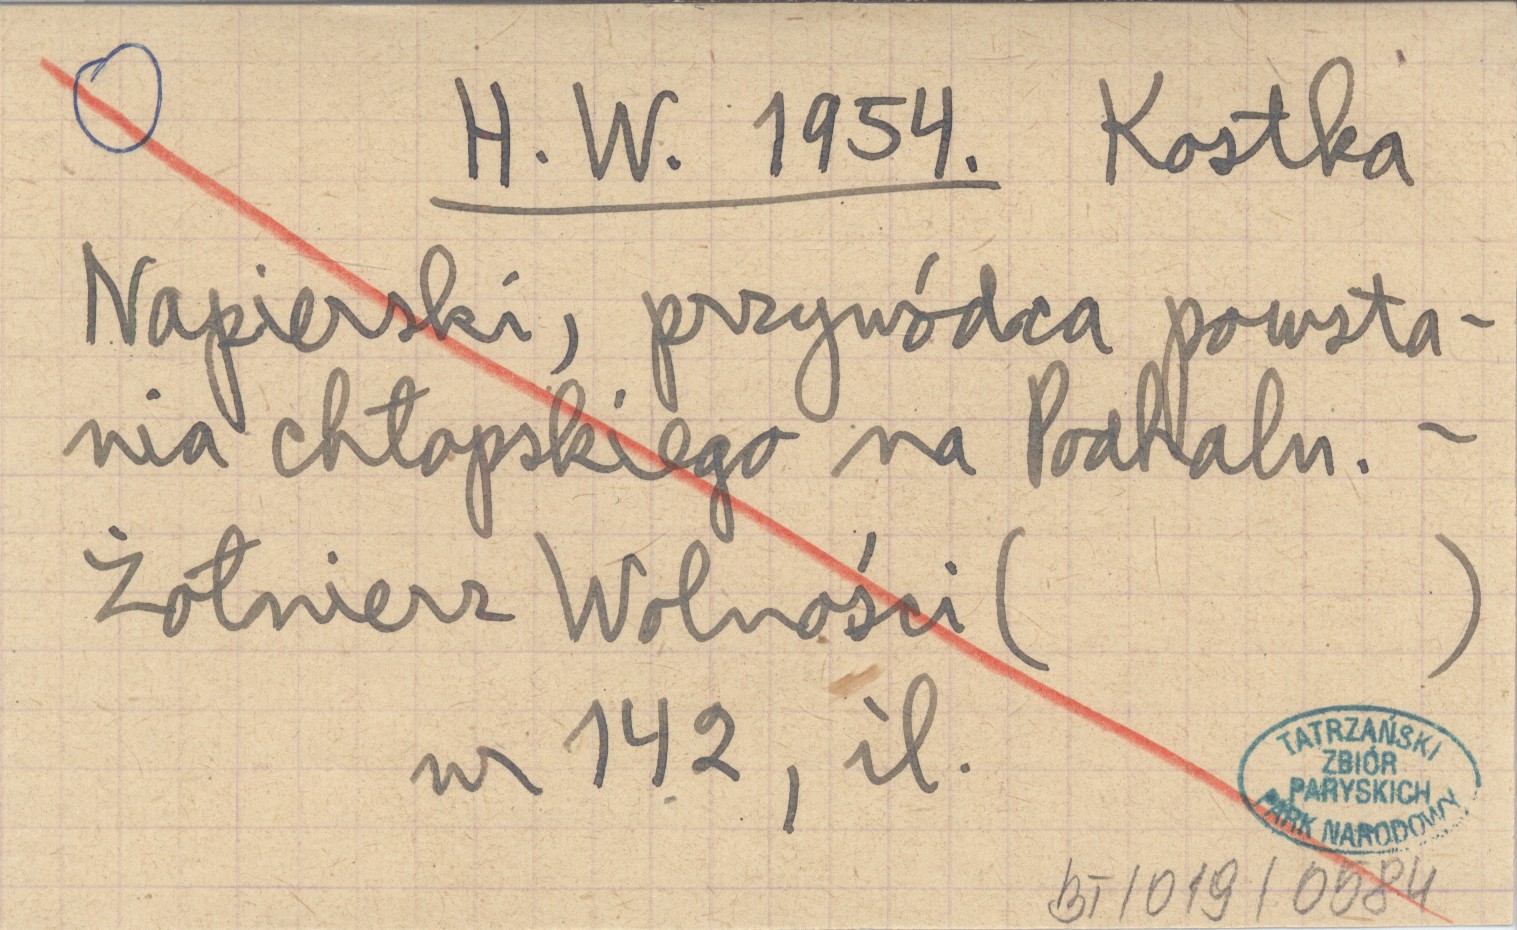 H. W. 1954. Kostka
Napierski, przywódca powsta-
nia chłopskiego na Podhalu. -
Żołnierz Wolności ( )
nr 142, il.
TATRZAŃSKI
ZBIÓR
PARYSKICH
PARK NARODOWY
BT/019/0584